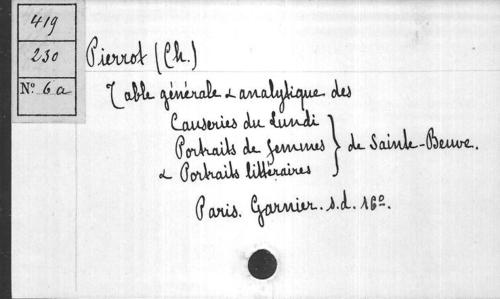 419
230
N° 6a
Pierrot (Ch.)
Table générale & analytique des
Causeries du Lundi
Portraits de femmes } de Sainte-Beuve.
& Portraits littéraires
Paris. Garnier. s.d. 16°.